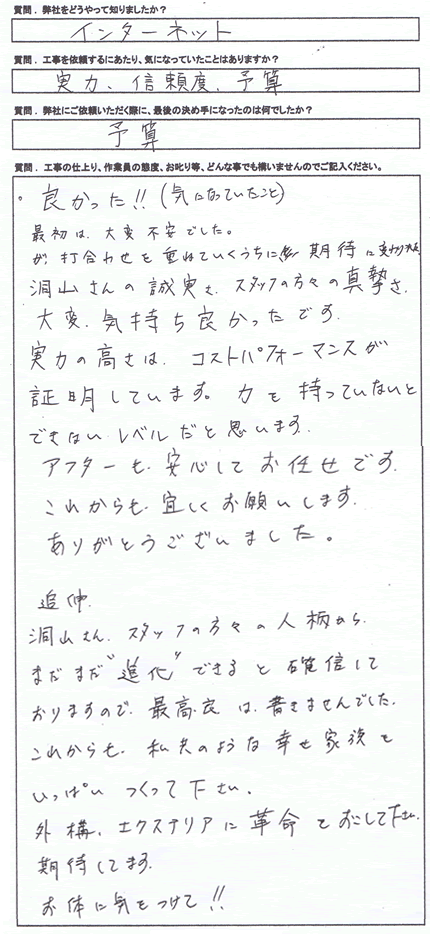 質問．弊社をどうやって知りましたか？
インターネット
質問．工事を依頼するにあたり、気になっていたことはありますか？
実力、信頼度、予算
質問．弊社にご依頼いただく際に、最後の決め手になったのは何でしたか？
予算
質問．工事の仕上り、作業員の態度、お叱り等、どんな事でも構いませんのでご記入ください。
。良かった!!(気になっていたこと)
最初は、大変不安でした。
が、打合わせを重ねていくうちに 期待に変わりました
洞山さんの誠実さ、スタッフの方々の真摯さ、
大変、気持ち良かったです。
実力の高さは、コストパフォーマンスが
証明しています。力を持っていないと
できないレベルだと思います。
アフターも、安心してお任せです。
これからも、宜しくお願いします。
ありがとうございました。
追伸、
洞山さん、スタッフの方々の人柄から、
まだまだ"進化"できると確信して
おりますので、最高、良は、書きませんでした。
これからも、私共のような幸せ家族を
いっぱいつくって下さい。
外構、エクステリアに革命をおこして下さい。
期待してます。
お体に気をつけて!!